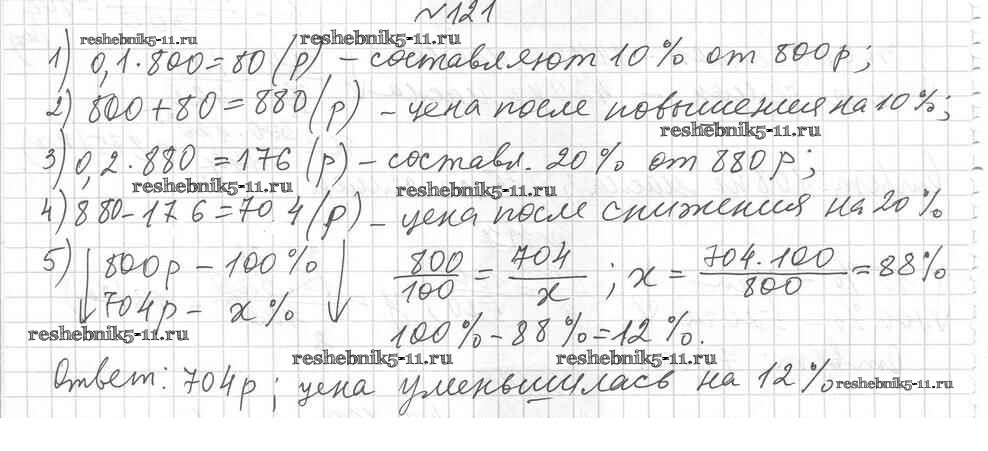 №121
reshebnik5-11.ru reshebnik5-11.ru
1) 0,1·800=80 (р) – составляют 10% от 800р;
2) 800+80=880(р) – цена после повышения на 10%;
reshebnik5-11.ru
3) 0,2·880=176 (р) – составл. 20% от 880р;
reshebnik5-11.ru reshebnik5-11.ru
4) 880-176=704(р) – цена после снижения на 20%
5) ↓800р – 100% ↓ 800/100 = 704/x ; x = 704·100/800 = 88%
704р – x%
reshebnik5-11.ru
100%-88%=12%.
reshebnik5-11.ru reshebnik5-11.ru
Ответ: 704р; цена уменьшилась на 12%
reshebnik5-11.ru